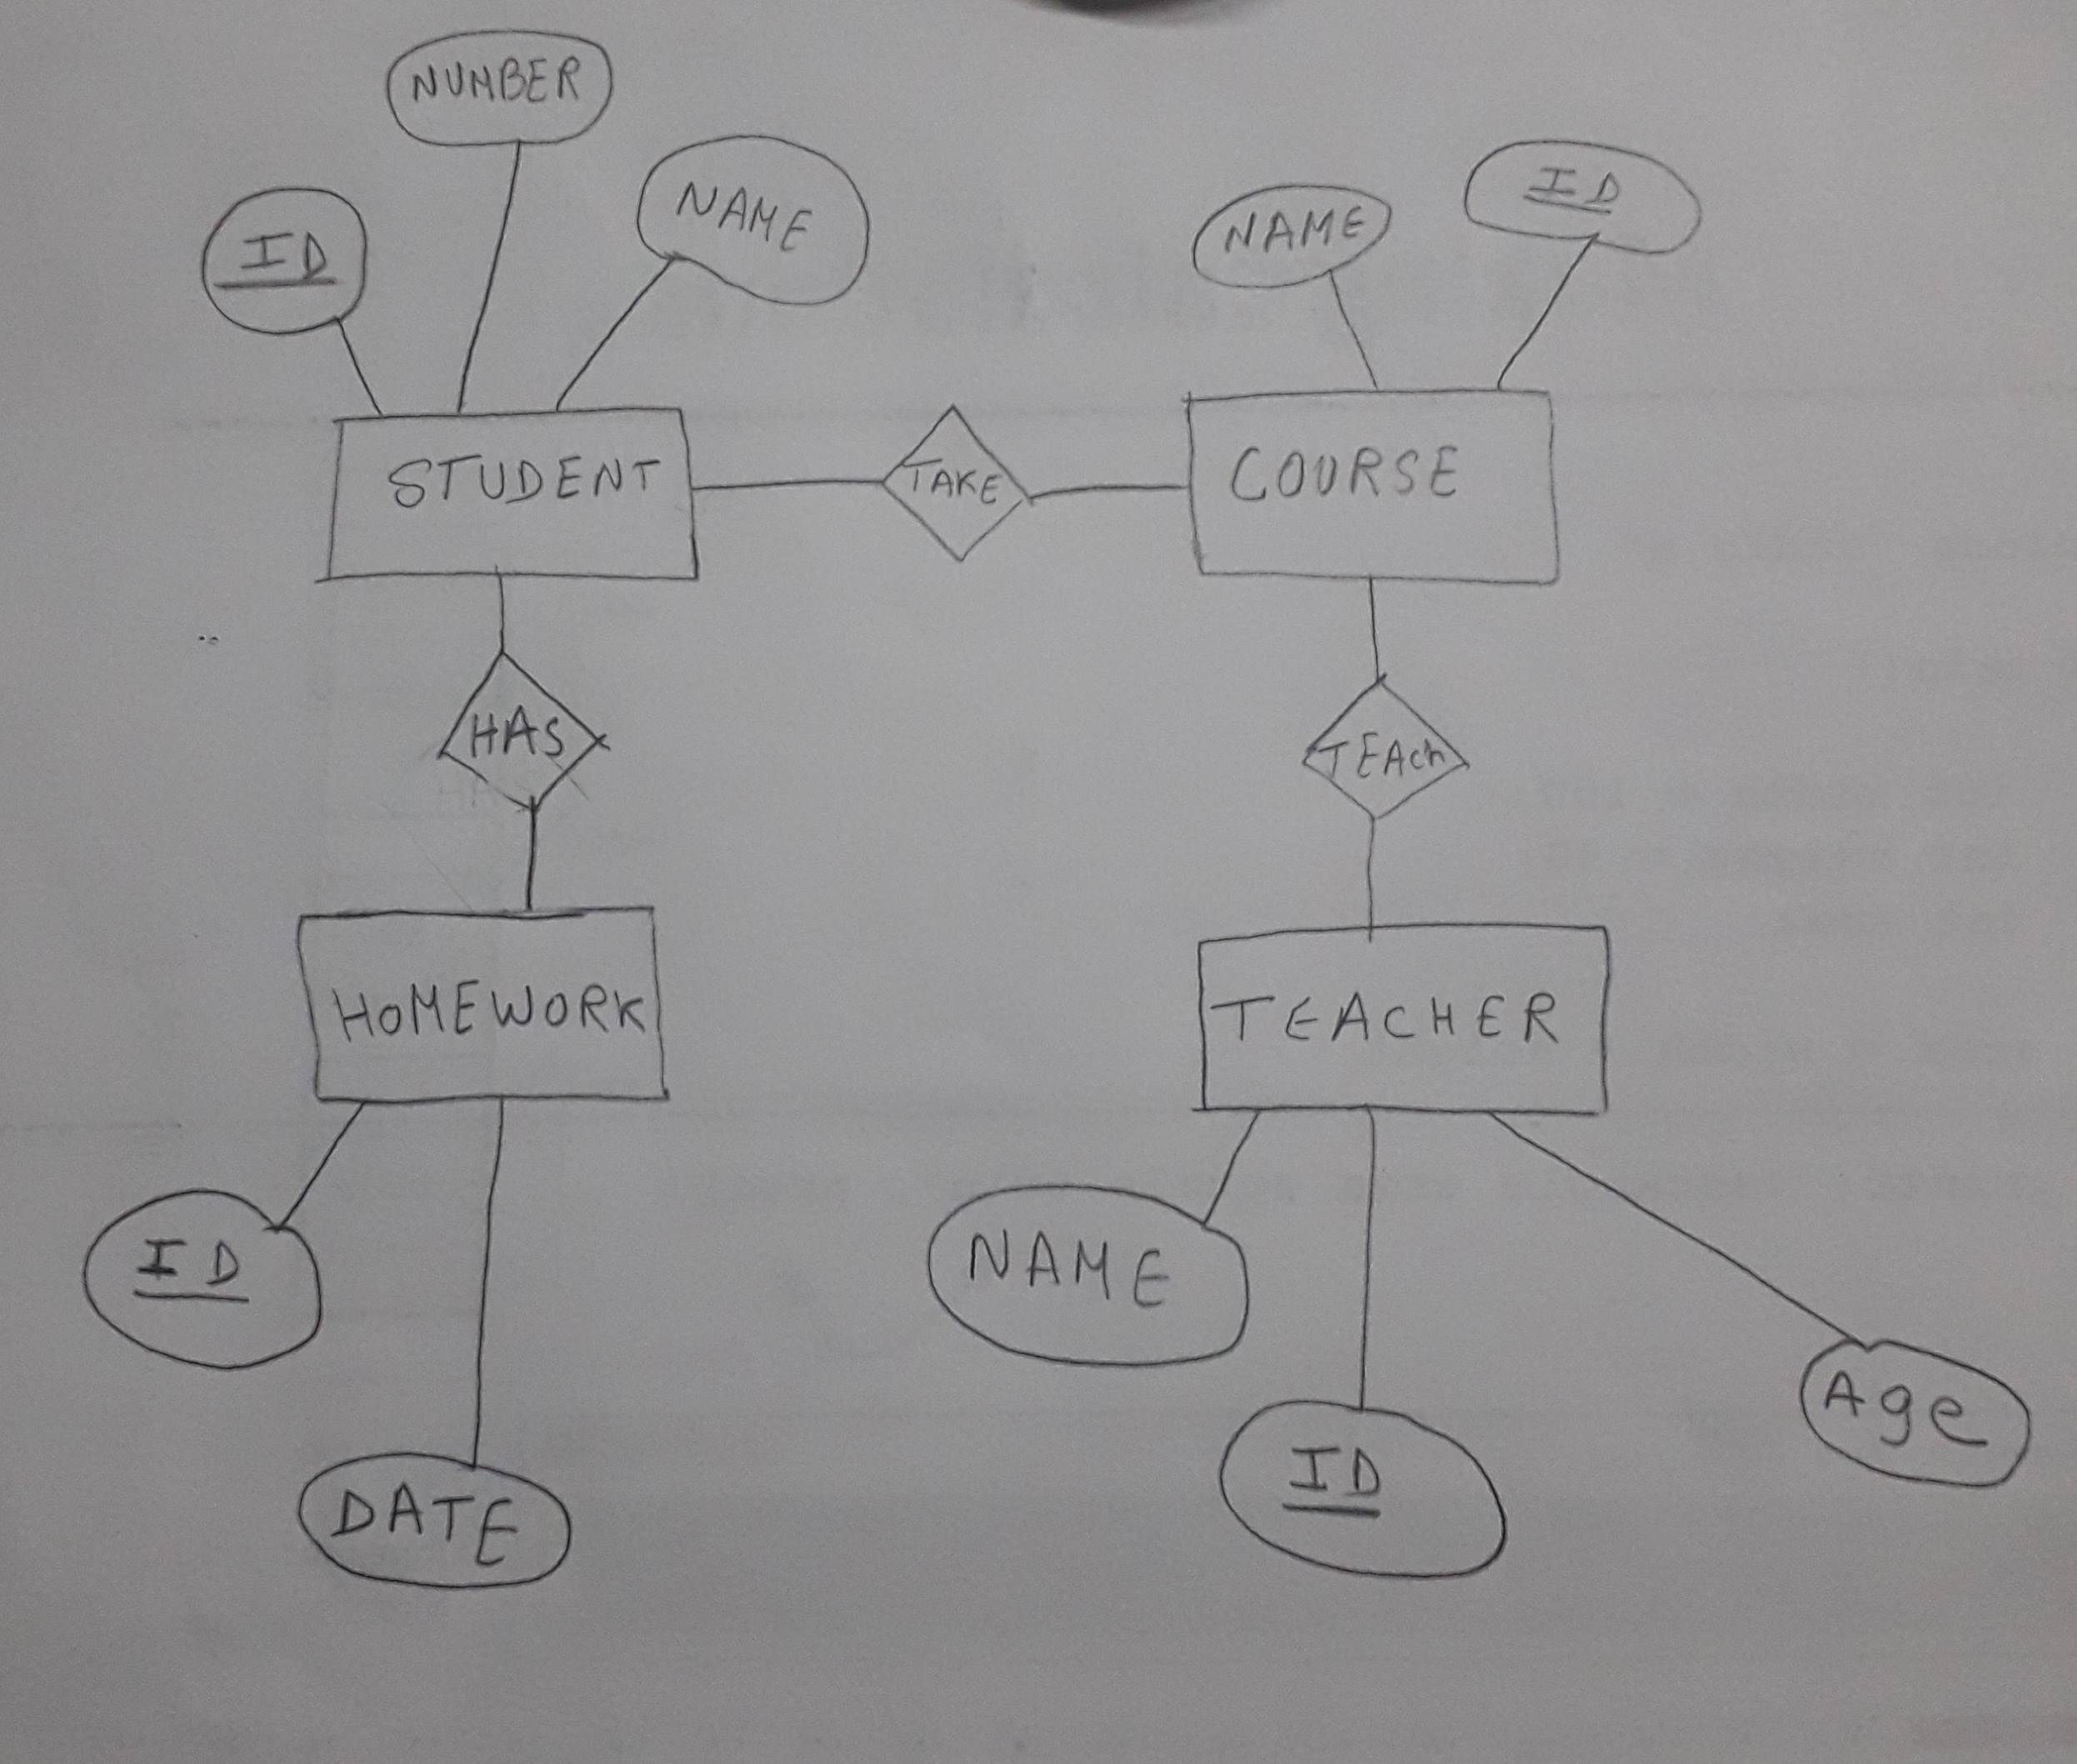 NUMBER
NAME
ID
NAME
ID
STUDENT
TAKE
COURSE
HAS
TEAch
HOMEWORK
TEACHER
ID
NAME
DATE
ID
Age